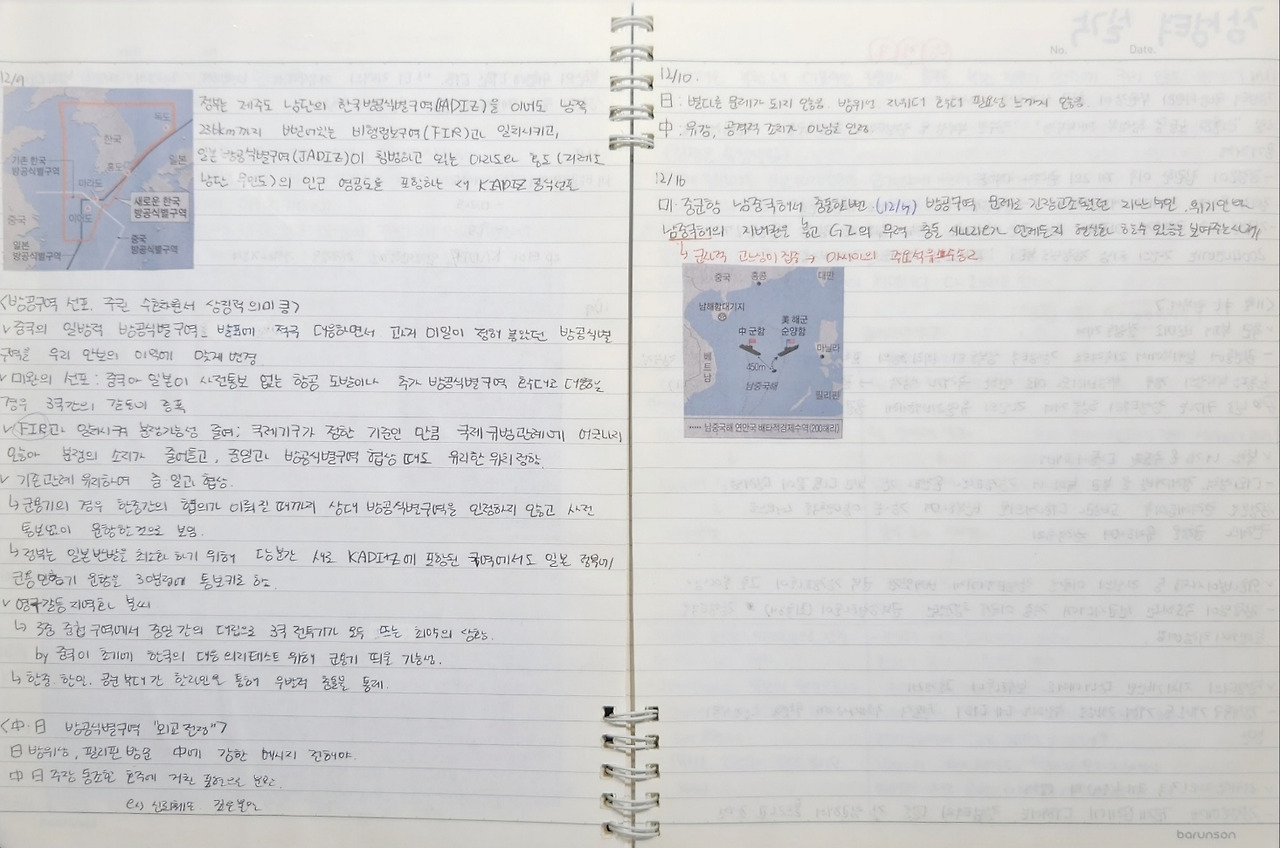 12/9
독도
한국
기존 한국
방공식별구역
홍도
일본
마라도
새로운 한국
방공식별구역
이어도
중국
중국
방공식별구역
일본
방공식별구역
정부는 제주도 남단의 한국방공식별구역(KADIZ)을 이어도 남쪽
236km까지 뻗어있는 비행정보구역(FIR)과 일치시키고,
일본 방공식별구역(JADIZ)이 침범하고 있는 마라도와 홍도(거제도
남단 무인도)의 인근 영공도 포함하는 새 KADIZ 공식선포
<방공구역 선포. 주권 수호차원서 상징적 의미 큼>
v 중국의 일방적 방공식별구역 발표에 적극 대응하면서 과거 미일이 정해 놓았던 방공식별
구역을 우리 안보의 이익에 맞게 변경
v 미완의 선포: 중국이나 일본이 사전통보 없는 항공 도발이나 추가 방공식별구역 확대로 대응할
경우 3국간의 갈등이 증폭
v FIR과 일치시켜 분쟁가능성 줄여: 국제기구가 정한 기준인 만큼 국제규범관례에 어긋나지
않아 분쟁의 소지가 줄어들고, 중일과 방공식별구역 협상 때도 유리한 위치 점함.
v 기존관례 유지하며 중 일과 협상.
↳ 군용기의 경우 한중간의 협의가 이뤄질 때까지 상대 방공식별구역을 인정하지 않고 사전
통보없이 운항한 것으로 보임.
↳ 정부는 일본반발을 최소화 하기 위해 당분간 새로 KADIZ에 포함된 구역에서도 일본 측에
군용 항공기 운항을 30분전에 통보키로 함.
v 영구갈등지역화 불씨
↳ 3중 중첩 구역에서 중일 간의 대립으로 3국 전투기가 모두 뜨는 최악의 상황.
by 중국이 초기에 한국의 대응 의지테스트 위해 군용기 띄울 가능성.
↳ 한중 한일. 공군부대 간 핫라인을 통해 우발적 충돌을 통제.
<中·日 방공식별구역 "외교전쟁">
日 방위상, 필리핀 방문 中에 강한 메시지 전해야.
中 日 주장 동조한 호주에 거친 표현으로 분노.
ex) 신뢰훼손. 깊은 불만
No. Date.
12/10.
日: 별다른 문제가 되지 않음. 방위성 자위대 확대 필요성 느끼지 않음.
中. 유감, 공격적 조치 아님을 인정
12/16
미·중군함 남중국해서 충돌할뻔. (12/5) 방공구역 문제로 긴장고조됐던 지난 5일. 위기일발
남중국해의 지배권을 놓고 G2의 무력 충돌 시나리오가 언제든지 현실화 할 수 있음을 보여주는 사례
↳ 군사적 긴장이 점증 → 아시아의 주요석유 수송로
중국
홍콩
대만
남해함대기지
中 군함
美 해군
순양함
베트남
마닐라
450m
남중국해
필리핀
····· 남중국해 연안국 배타적경제수역(200해리)
barunson